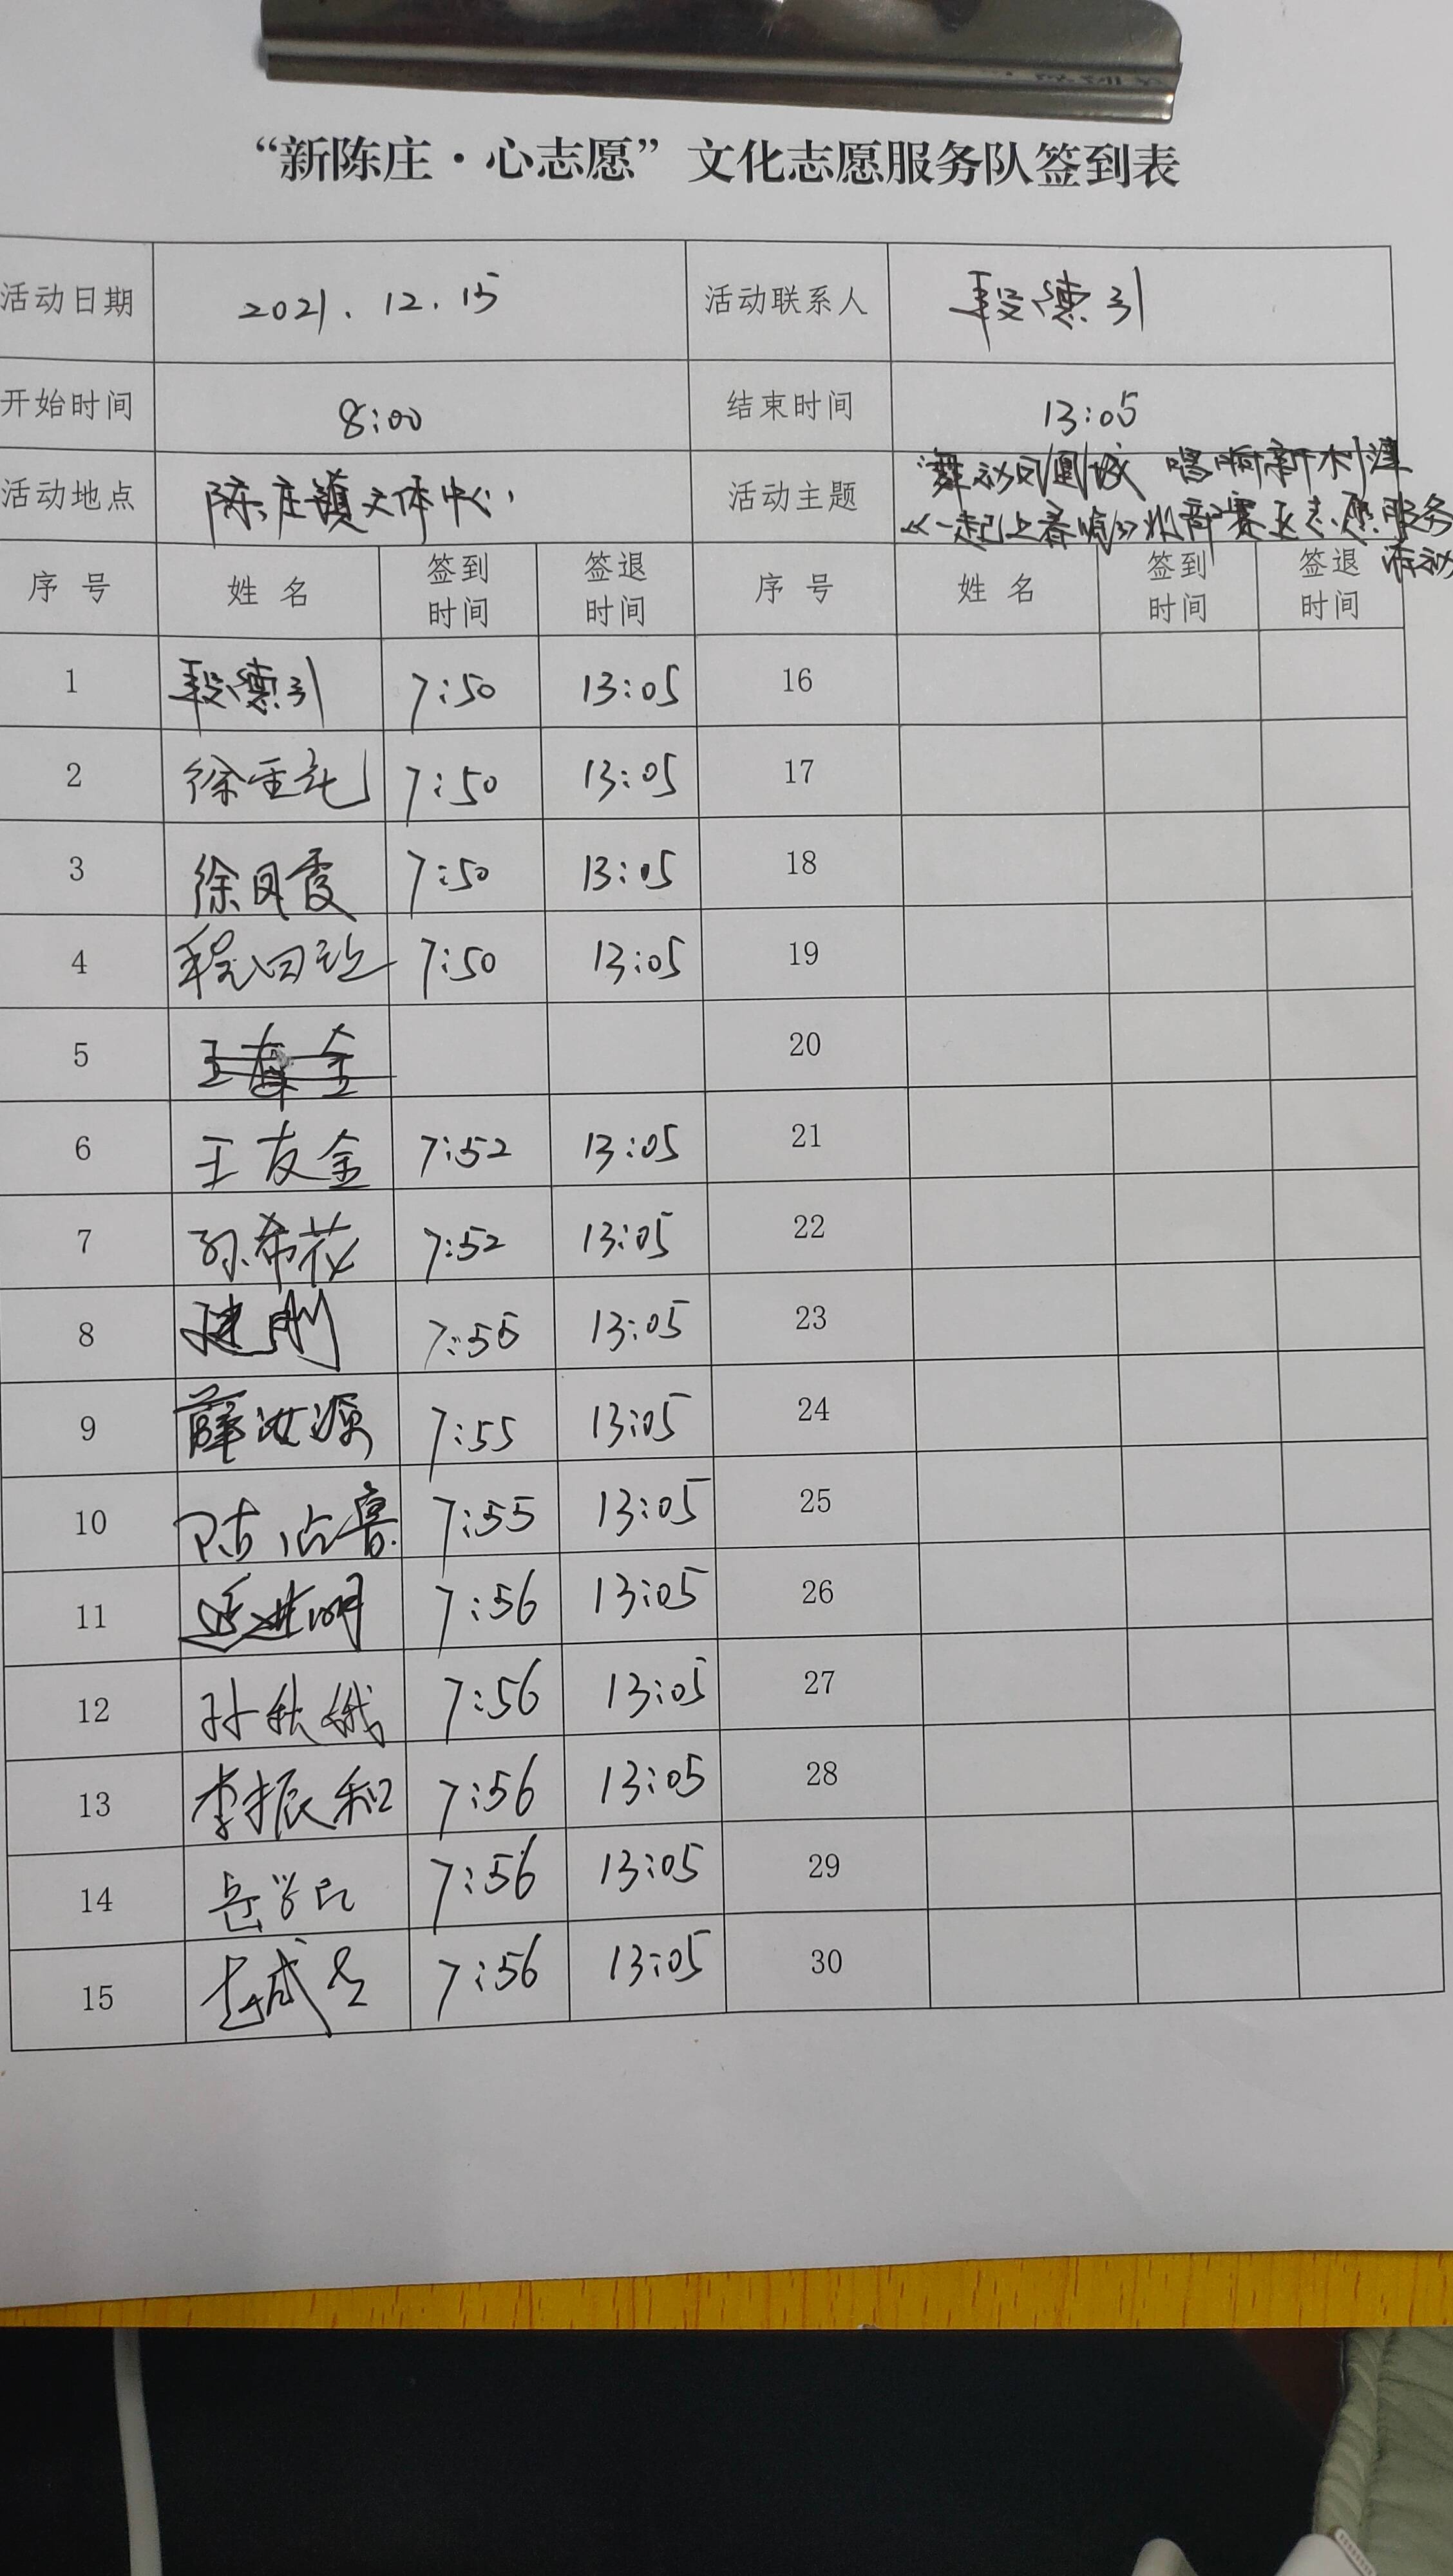 “新陈庄·心志愿”文化志愿服务队签到表
活动日期 2021.12.15 活动联系人 段德引
开始时间 8:00 结束时间 13:05
活动地点 陈庄镇文体中心 活动主题 舞动凤凰城 唱响新利津
《一起上春晚》北部赛区志愿服务
活动
序号 姓名 签到时间 签退时间 序号 姓名 签到时间 签退时间
1 段德引 7:50 13:05 16
2 徐 7:50 13:05 17
3 徐凤霞 7:50 13:05 18
4 程 7:50 13:05 19
5 20
6 王友金 7:52 13:05 21
7 孙希花 7:52 13:05 22
8 7:55 13:05 23
9 薛汝源 7:55 13:05 24
10 陈占鲁 7:55 13:05 25
11 7:56 13:05 26
12 孙秋娥 7:56 13:05 27
13 李振和 7:56 13:05 28
14 岳学 7:56 13:05 29
15 7:56 13:05 30